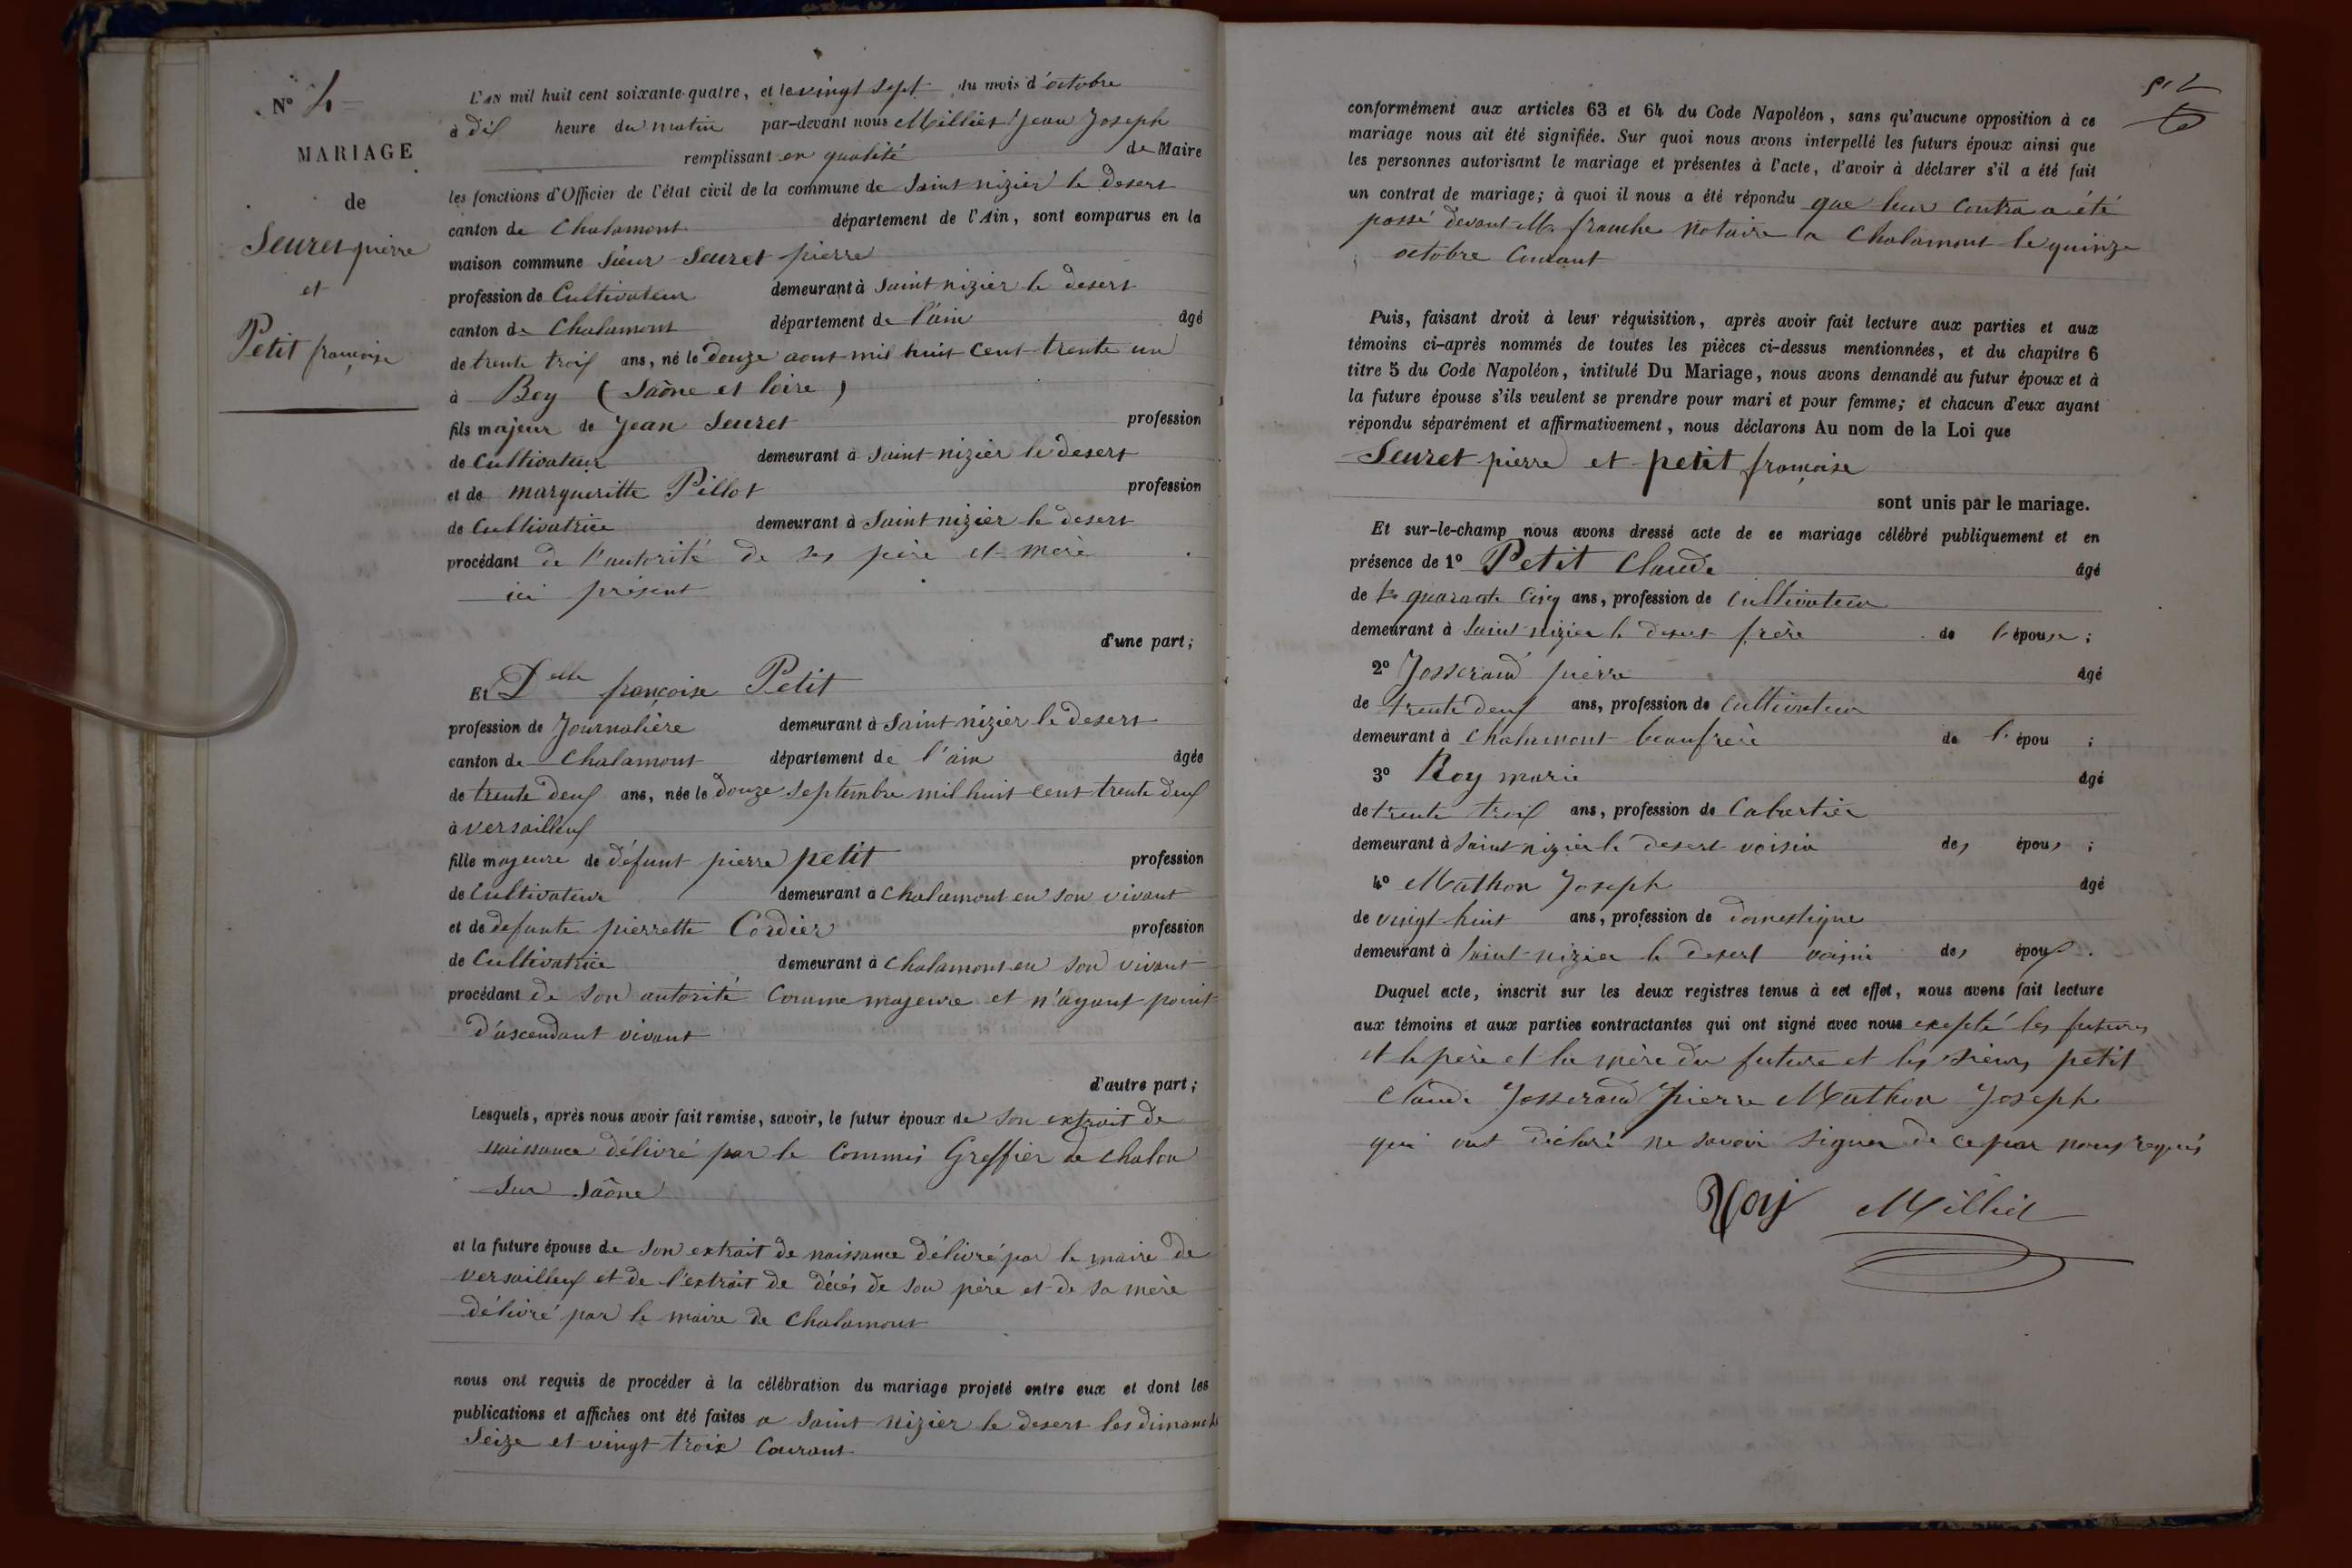 N° 4
MARIAGE
de
Seuret pierre
et
Petit françoise
L'AN mil huit cent soixante-quatre, et le vingt sept du mois d'octobre
à dix heure du matin par-devant nous Milliet Jean Joseph
remplissant en qualité de Maire
les fonctions d'Officier de l'état civil de la commune de Saint nizier le desert
canton de Chalamont département de l'Ain, sont comparus en la
maison commune Sieur Seuret pierre
profession de Cultivateur demeurant à Saint nizier le desert
canton de Chalamont département de l'ain âgé
de trente trois ans, né le Douze aout mil huit cent trente un
à Bey (Saône et loire)
fils majeur de Jean Seuret profession
de Cultivateur demeurant à Saint nizier le desert
et de margueritte Pillot profession
de Cultivatrice demeurant à Saint nizier le desert
procédant de l'autorité de ses père et mère
ici présent
d'une part;
Et Delle françoise Petit
profession de Journalière demeurant à Saint nizier le desert
canton de Chalamont département de l'ain âgée
de trente deux ans, née le Douze septembre mil huit cent trente deux
à versailleux
fille majeure de défunt pierre petit profession
de Cultivateur demeurant à Chalamont en son vivant
et de defunte pierrette Cordier profession
de Cultivatrice demeurant à Chalamont en son vivant
procédant de son autorité Comme majeure et n'ayant point
d'ascendant vivant
d'autre part;
Lesquels, après nous avoir fait remise, savoir, le futur époux de son extrait de
naissance délivré par le Commis Greffier de chalon
Sur Saône
et la future épouse de Son extrait de naissance délivré par le maire de
versailleux et de l'extrait de décés de son père et de sa mère
délivré par le maire de Chalamont
nous ont requis de procéder à la célébration du mariage projeté entre eux et dont les
publications et affiches ont été faites a Saint nizier le desert les dimanche
Seize et vingt trois Courant
conformément aux articles 63 et 64 du Code Napoléon, sans qu'aucune opposition à ce
mariage nous ait été signifiée. Sur quoi nous avons interpellé les futurs époux ainsi que
les personnes autorisant le mariage et présentes à l'acte, d'avoir à déclarer s'il a été fait
un contrat de mariage; à quoi il nous a été répondu que leur Contra a été
passé devant Me franche Notaire a Chalamont le quinze
octobre Courant
Puis, faisant droit à leur réquisition, après avoir fait lecture aux parties et aux
témoins ci-après nommés de toutes les pièces ci-dessus mentionnées, et du chapitre 6
titre 5 du Code Napoléon, intitulé Du Mariage, nous avons demandé au futur époux et à
la future épouse s'ils veulent se prendre pour mari et pour femme; et chacun d'eux ayant
répondu séparément et affirmativement, nous déclarons Au nom de la Loi que
Seuret pierre et petit françoise
sont unis par le mariage.
Et sur-le-champ nous avons dressé acte de ce mariage célébré publiquement et en
présence de 1° Petit Claude âgé
de quarante Cinq ans, profession de Cultivateur
demeurant à Saint nizier le desert frère de l'épouse;
2° Josserand pierre âgé
de trente deux ans, profession de Cultivateur
demeurant à Chalamont beaufrère de l'épou;
3° Roy marie âgé
de trente trois ans, profession de Cabartier
demeurant à Saint nizier le desert voisin des épous;
4° Mathon Joseph âgé
de vingt huit ans, profession de domestique
demeurant à Saint nizier le desert voisin des époux.
Duquel acte, inscrit sur les deux registres tenus à cet effet, nous avons fait lecture
aux témoins et aux parties contractantes qui ont signé avec nous exepté les futures
et le père et la mère du future et les sieurs petit
Claude Josserand pierre Mathon Joseph
qui ont déclaré ne savoir signer de ce par nous requis
Roy Milliet